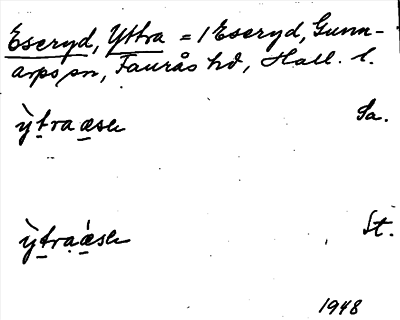 Eseryd, Yttra = 1 Eseryd, Gunn-
arps sn, Faurås hd, Hall. l.
ỳtraæse Sa.
ỳtraǽse St.
1948